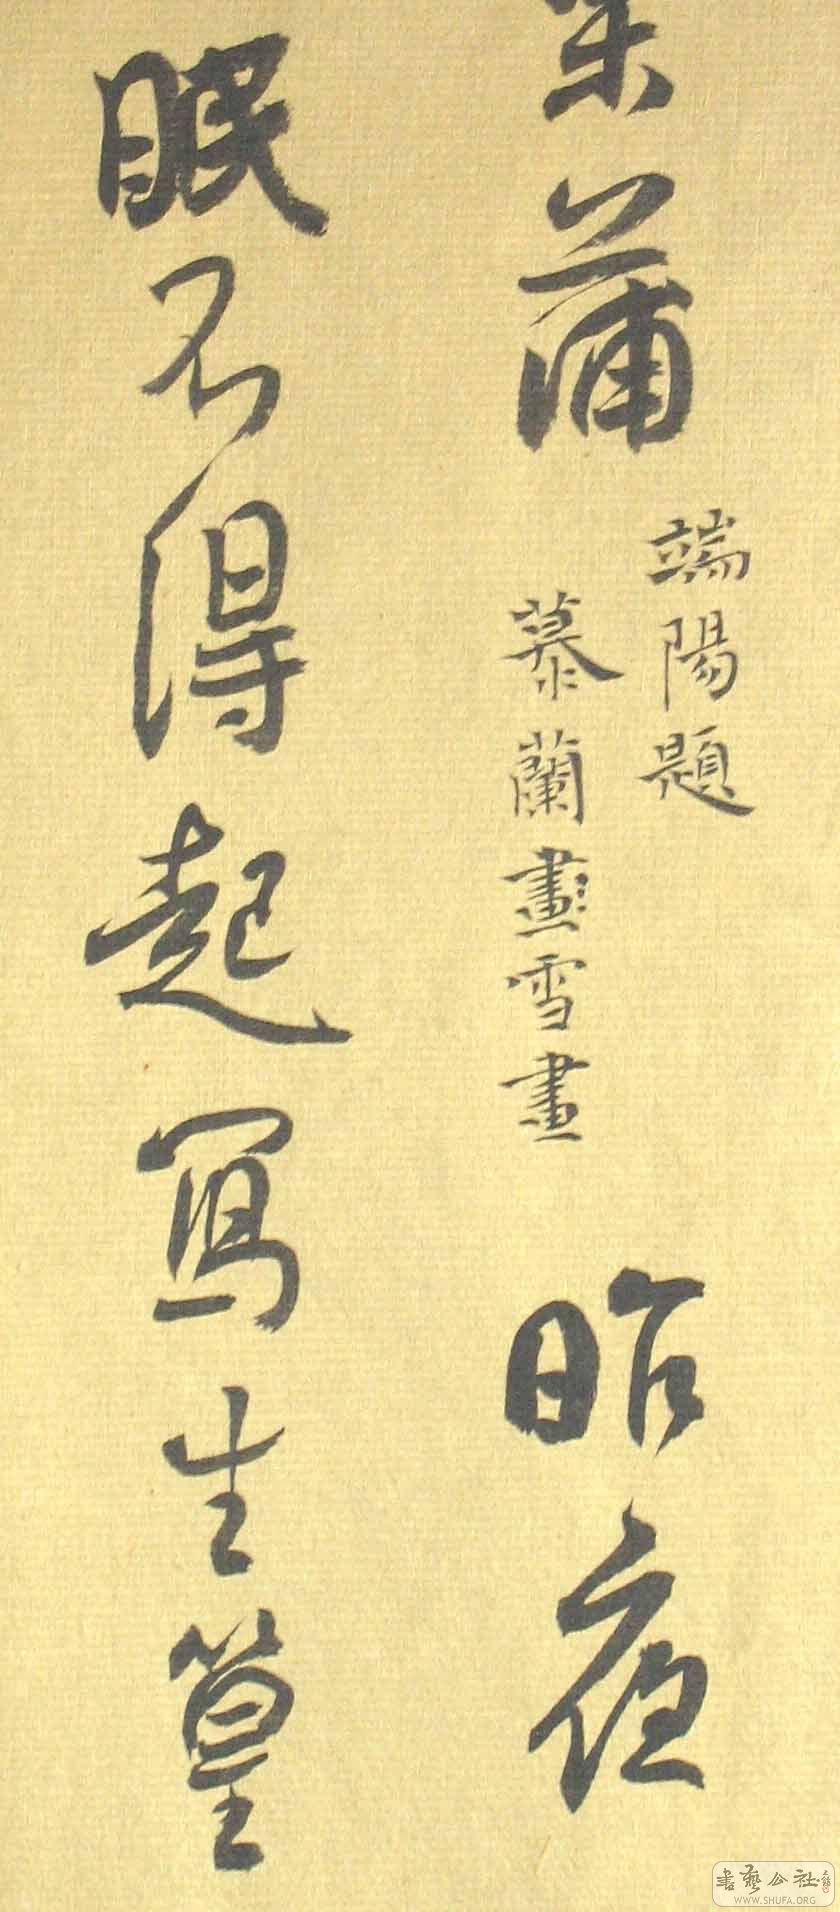 蒲
端陽題
慕蘭畫雪畫
昨夜
眠不得起寫生篁
書藝公社
WWW.SHUFA.ORG